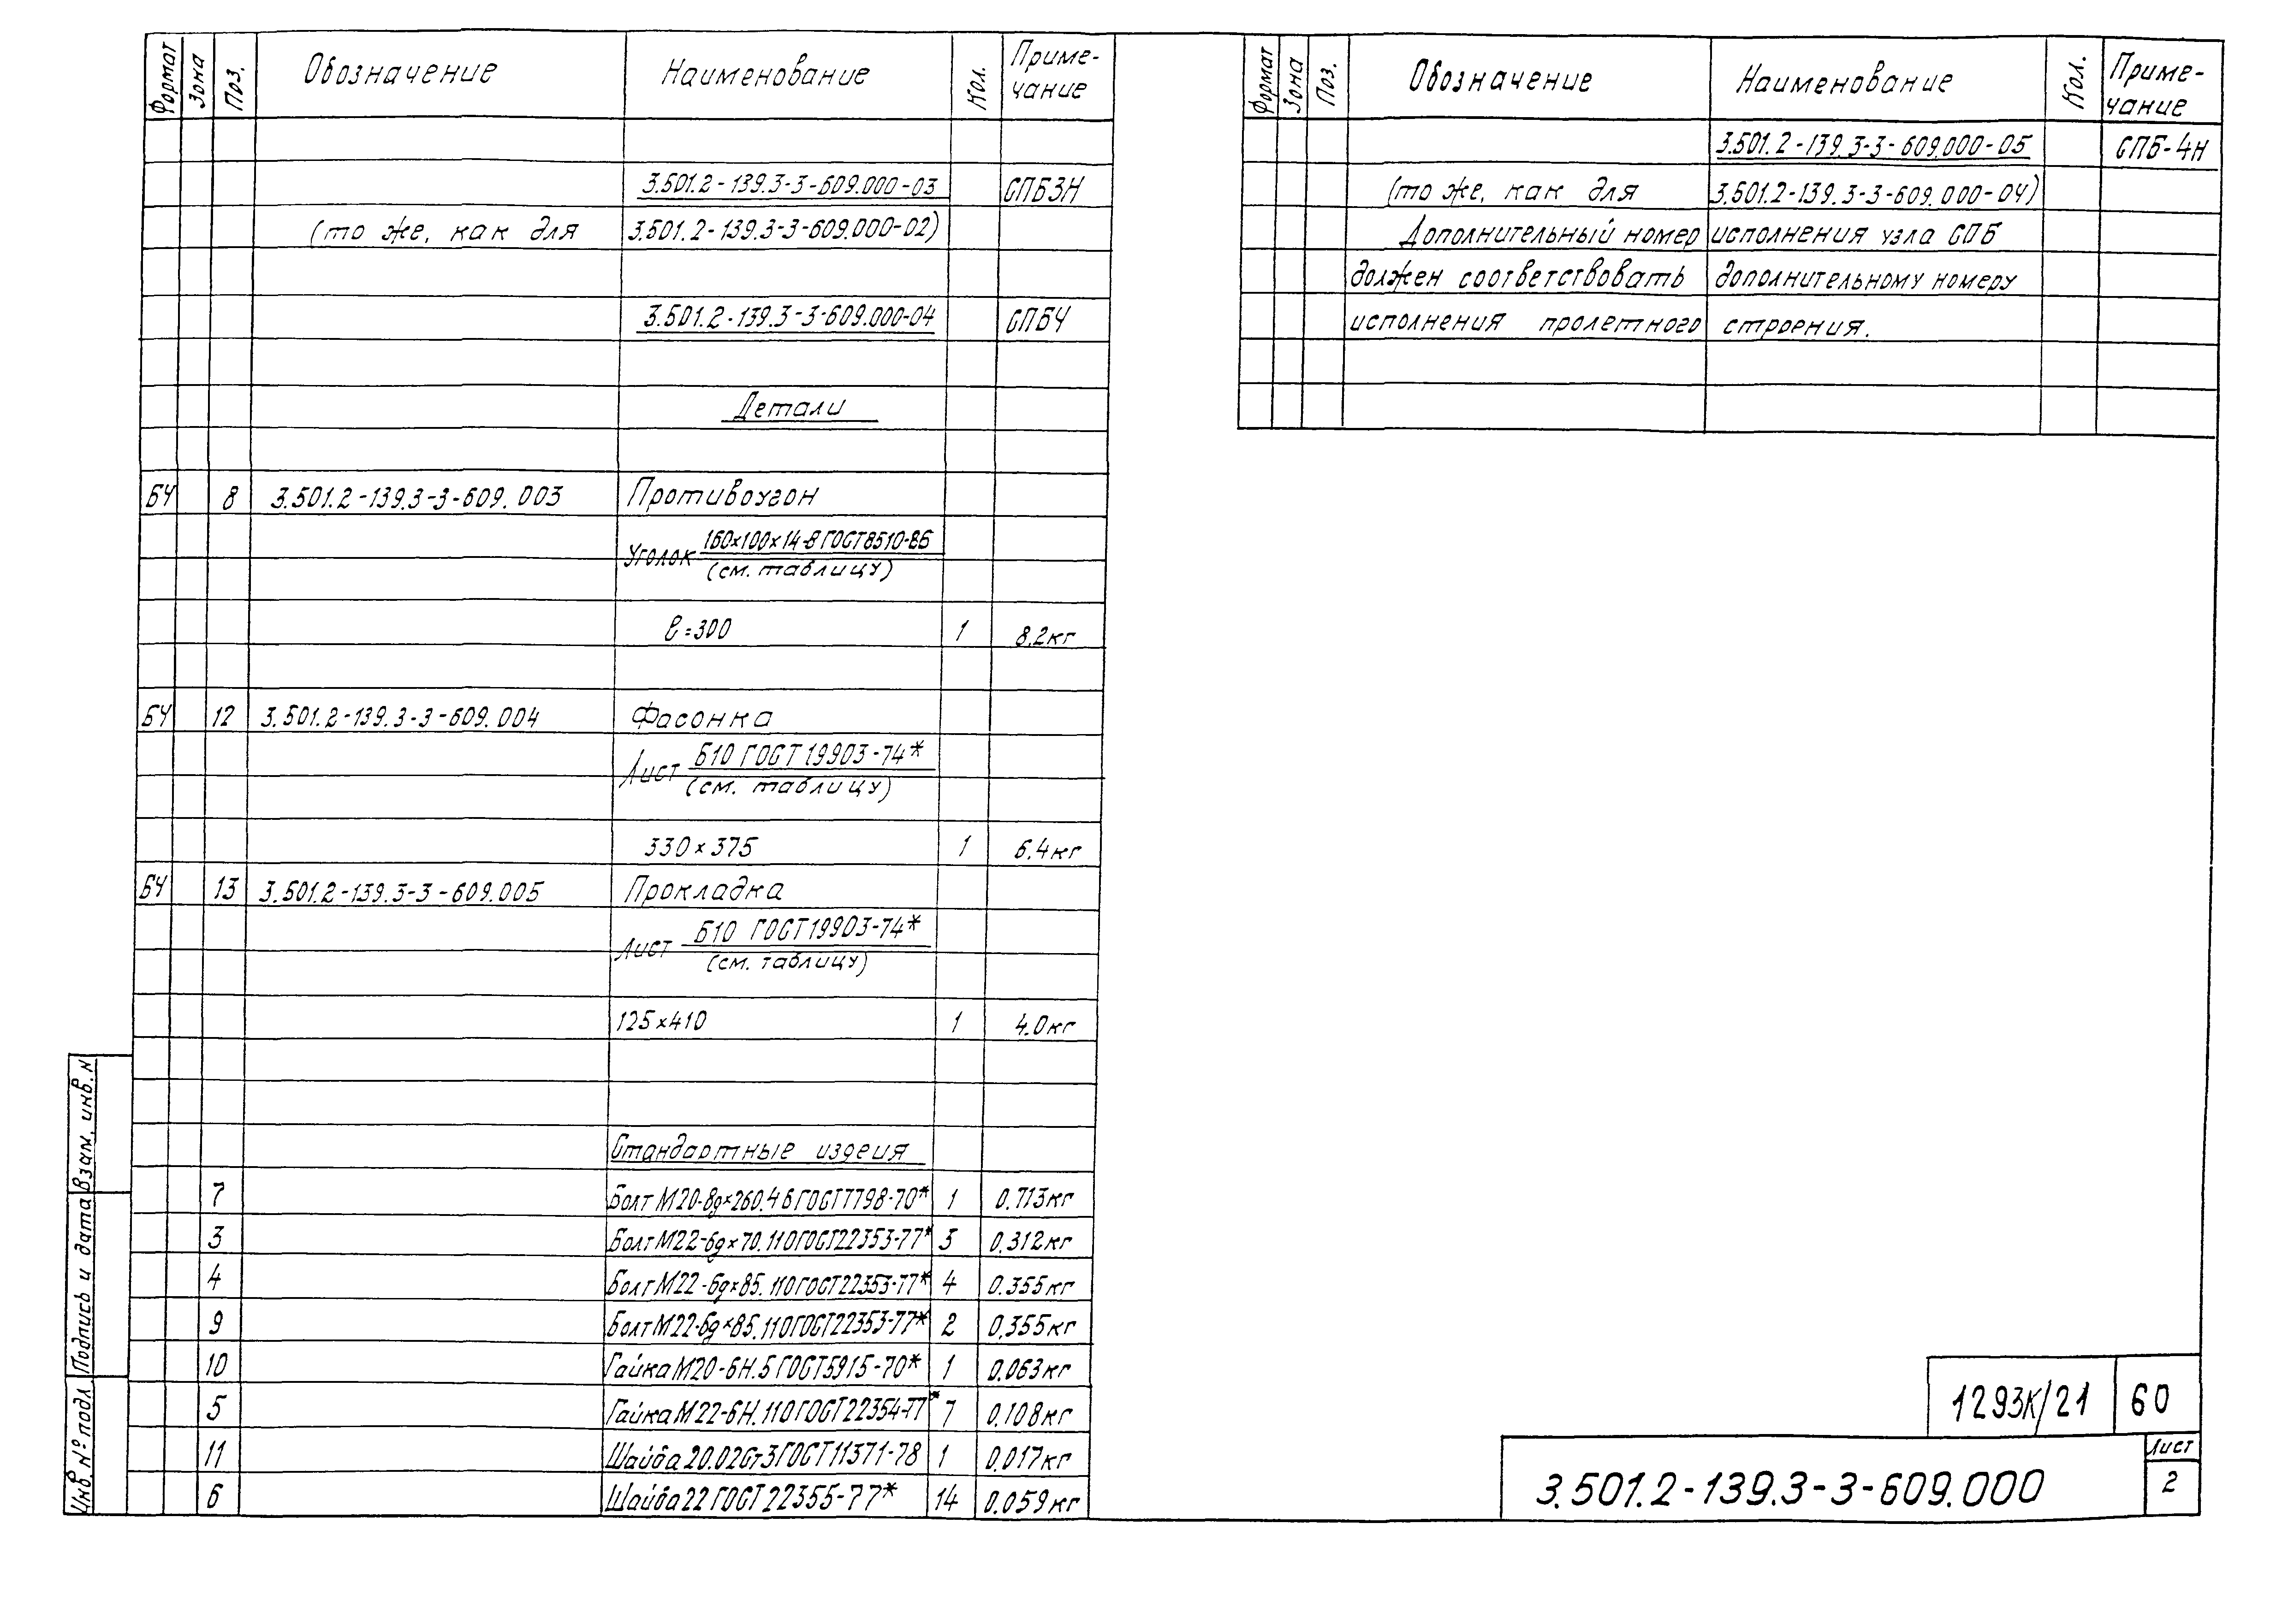 Формат Зона Поз. Обозначение Наименование Кол. Приме-
чание
3.501.2-139.3-3-609.000-03 СПБ3Н
(то же, как для 3.501.2-139.3-3-609.000-02)
3.501.2-139.3-3-609.000-04 СПБ4
Детали
БЧ 8 3.501.2-139.3-3-609.003 Противоугон
Уголок 160×100×14-В ГОСТ8510-86
(см. таблицу)
ℓ=300 1 8.2кг
БЧ 12 3.501.2-139.3-3-609.004 Фасонка
Лист Б10 ГОСТ 19903-74*
(см. таблицу)
330×375 1 6.4кг
БЧ 13 3.501.2-139.3-3-609.005 Прокладка
Лист Б10 ГОСТ19903-74*
(см. таблицу)
125×410 1 4.0кг
Стандартные издеия
7 Болт М20-8g×260.46 ГОСТ7798-70* 1 0.713кг
3 Болт М22-6g×70.110 ГОСТ22353-77* 5 0.312кг
4 Болт М22-6g×85.110 ГОСТ22353-77* 4 0.355кг
9 Болт М22-6g×85.110 ГОСТ22353-77* 2 0.355кг
10 Гайка М20-6Н.5 ГОСТ5915-70* 1 0.063кг
5 Гайка М22-6Н.110 ГОСТ22354-77* 7 0.108кг
11 Шайба 20.02Ст3 ГОСТ11371-78 1 0.017кг
6 Шайба 22 ГОСТ22355-77* 14 0.059кг
Формат Зона Поз. Обозначение Наименование Кол. Приме-
чание
3.501.2-139.3-3-609.000-05 СПБ-4Н
(то же, как для 3.501.2-139.3-3-609.000-04)
Дополнительный номер исполнения узла СПБ
должен соответствовать дополнительному номеру
исполнения пролетного строения.
Взам. инв. N
Подпись и дата
Инв № подл
1293К/21 60
3.501.2-139.3-3-609.000
Лист
2